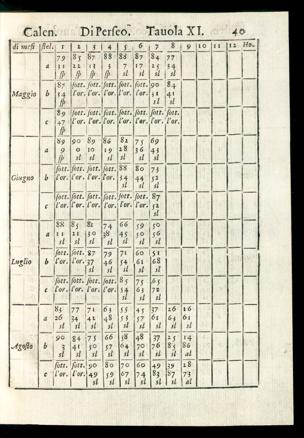 Calen. Di Perseo. Tauola XI. 40
di mesi stel. 1 2 3 4 5 6 7 8 9 10 11 12 Ho.
79 85 87 88 88 87 84 77
a 31 22 13 3 7 17 25 34
sp sp sp sp sl sl sl sl
87 sott. sott. sott. sott. sott. 90 84
Maggio b 14 l'or. l'or. l'or. l'or. l'or. 31 41
sp sl sl
89 sott. sott. sott. sott. sott. sott. sott.
c 47 l'or. l'or. l'or. l'or. l'or. l'or. l'or.
sp
89 90 89 86 82 75 69
a 9 0 10 19 28 36 43
sp sl sl sl sl sl
sott. sott. sott. sott. 88 80 73
Giugno b l'or. l'or. l'or. l'or. 34 44 52
sl sl sl
sott. sott. sott. sott. sott. sott. 87
c l'or. l'or. l'or. l'or. l'or. l'or. 52
sl
88 85 81 74 66 59 50
a 11 21 30 38 45 50 56
sl sl sl sl sl sl sl
sott. sott. 87 79 71 60 51
Luglio b l'or. l'or. 37 46 54 61 68
sl sl sl sl sl
sott. sott. sott. sott. 85 75 65
c l'or. l'or. l'or. l'or. 54 63 72
sl sl sl
85 77 71 63 55 45 37 26 16
a 26 34 42 48 53 57 61 63 61
sl sl sl sl sl sl sl sl sl
90 84 75 66 58 48 37 25 14
Agosto b 3 41 50 57 64 70 76 85 86
sl sl sl sl sl sl sl sl al
sott. sott. 90 80 70 60 49 39 28
c l'or. l'or. 49 59 67 74 83 87 73
sl sl sl sl sl al al